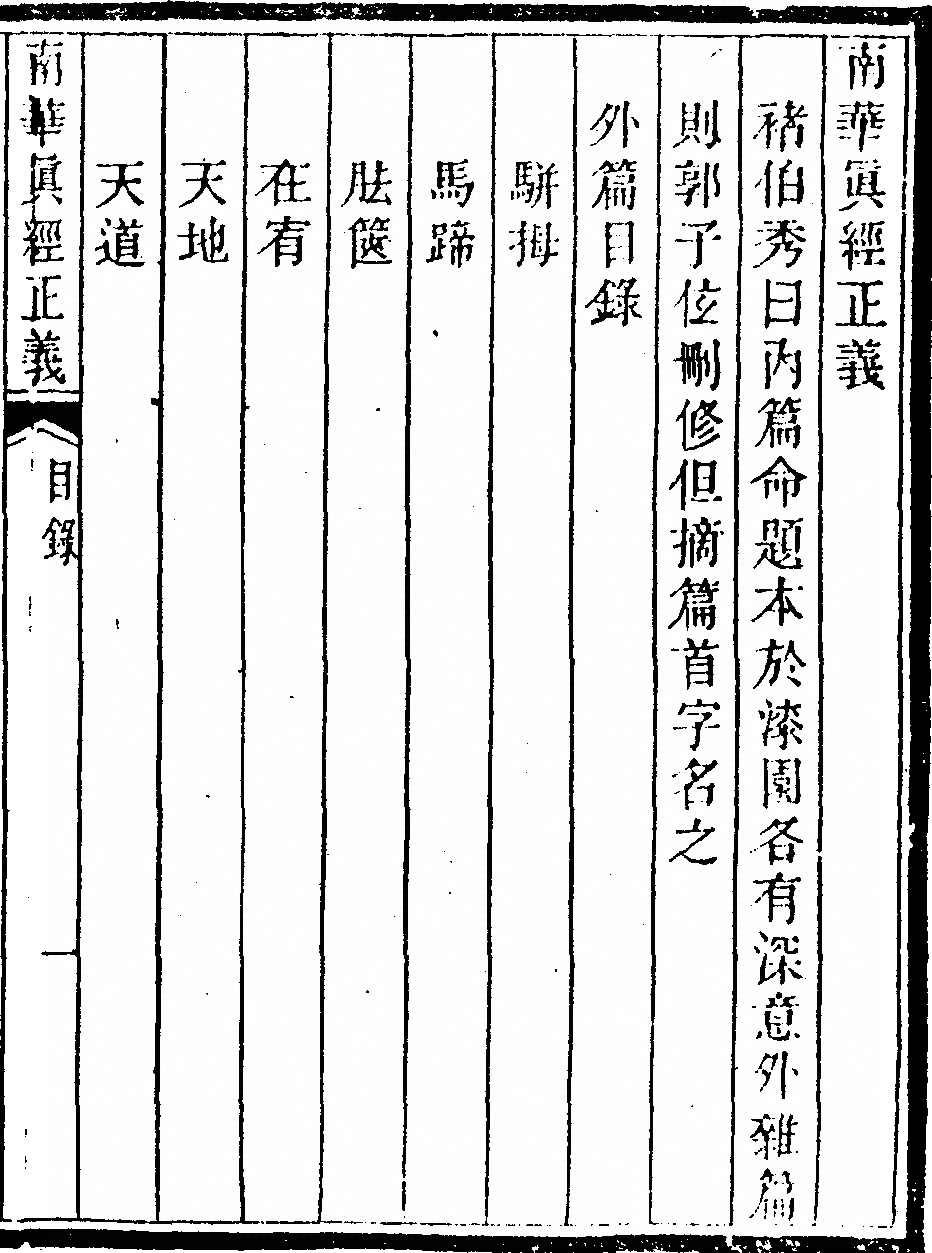 南華眞經正義
褚伯秀曰內篇命題本於漆園各有深意外雜篇
則郭子位刪修但摘篇首字名之
外篇目錄
駢拇
馬蹄
胠篋
在宥
天地
天道
南華眞經正義
目錄
一